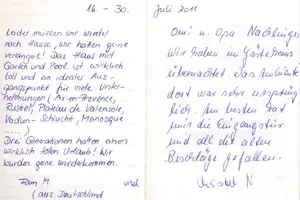 16. - 30.
Leider müssen wir wieder
nach Hause, wir hätten gerne
verlängert! Das Haus mit
Garten und Pool ist wirklich
toll und ein idealer Aus-
gangspunkt für viele Unter-
nehmungen (Aix-en-Provence,
Rustrel, Plateau de Valensole,
Verdon-Schlucht, Manosque
.....)
Drei Generationen hatten einen
wirklich tollen Urlaub! Wir
würden gerne wiederkommen.
Fam. M. und
(aus Deutschland
Juli 2011
Omi u. Opa
Wir haben im Gästehaus
übernachtet. Das Ambiente
dort war sehr
Am besten hat
mir die Eingangstür
und all die alten
Beschläge gefallen.
N